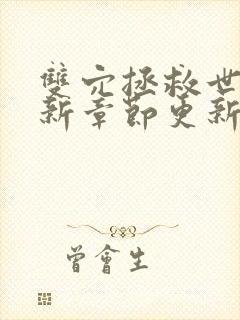 雙穴拯救世
新章節更新
曾會生